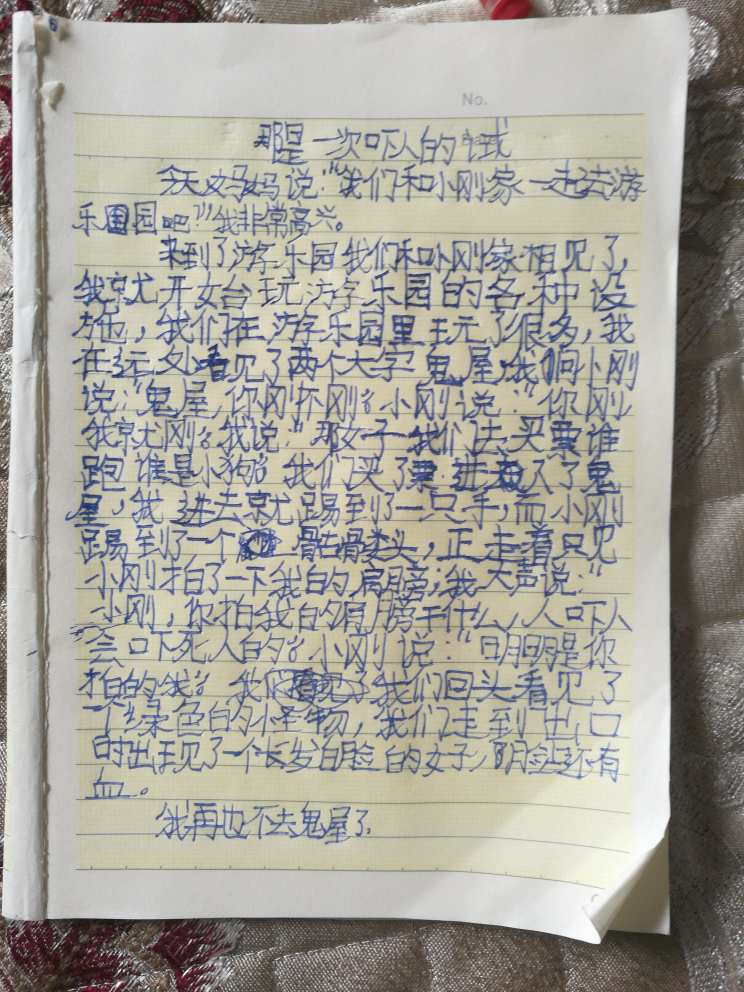 No.
那是一次吓人的
今天妈妈说:“我们和小刚家一起去游
乐园吧”我非常高兴。
来到了游乐园我们和小刚家相见了,
我就开始玩游乐园的各种设
施,我们在游乐园里玩了很多,我
在远处看见了两个大字鬼屋,我问小刚
说:“鬼屋,你刚不刚?小刚说:“你刚
我就刚?我说:“那好我们去买票谁
跑谁是小狗”我们买了票进入了鬼
屋,我进去就踢到了一只手,而小刚
踢到了一个骷髅头,正走着只见
小刚拍了一下我的肩膀;我大声说:“
小刚,你拍我的肩膀干什么,人吓人
会吓死人的?小刚说:“明明是你
拍的我?我们回头看见了
一个绿色的怪物,我们走到出口
时出现了一个长发白脸的女子,脸还有
血。
我再也不去鬼屋了,